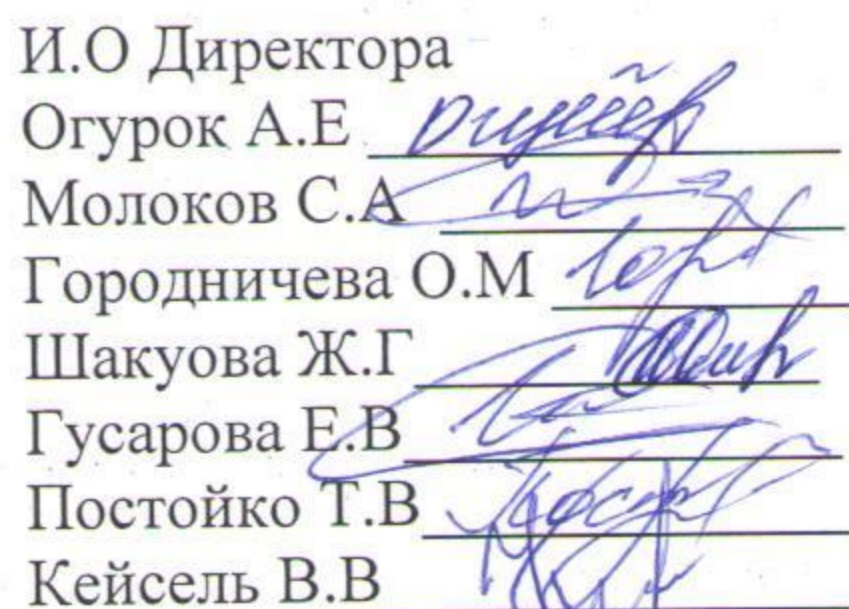 И.О Директора
Огурок А.Е
Молоков С.А
Городничева О.М
Шакуова Ж.Г
Гусарова Е.В
Постойко Т.В
Кейсель В.В